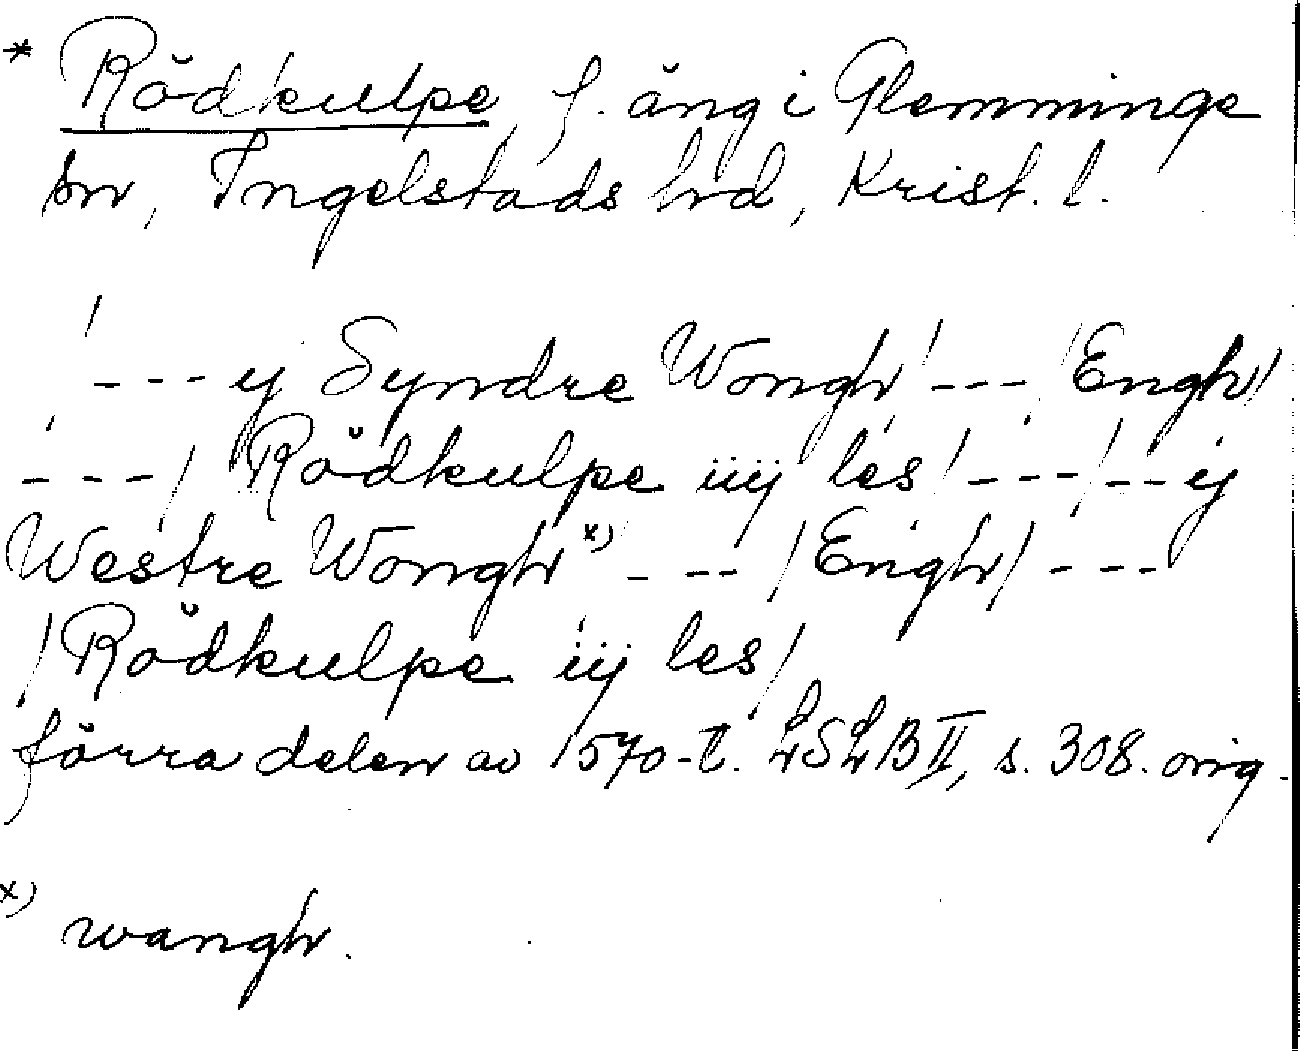 * Rödkulpe, f. äng i Glemminge
sn, Ingelstads hrd, Krist. l.
/--- ij Syndre Wongh/ --- /Engh/
---/ Rödkulpe iiij les/ ---/-- ij
Westre Wongh x) --- /Engh/ ---
/Rödkulpe iij les/
förra delen av 1570-t. LSLB II, s. 308. orig.
x) wangh.